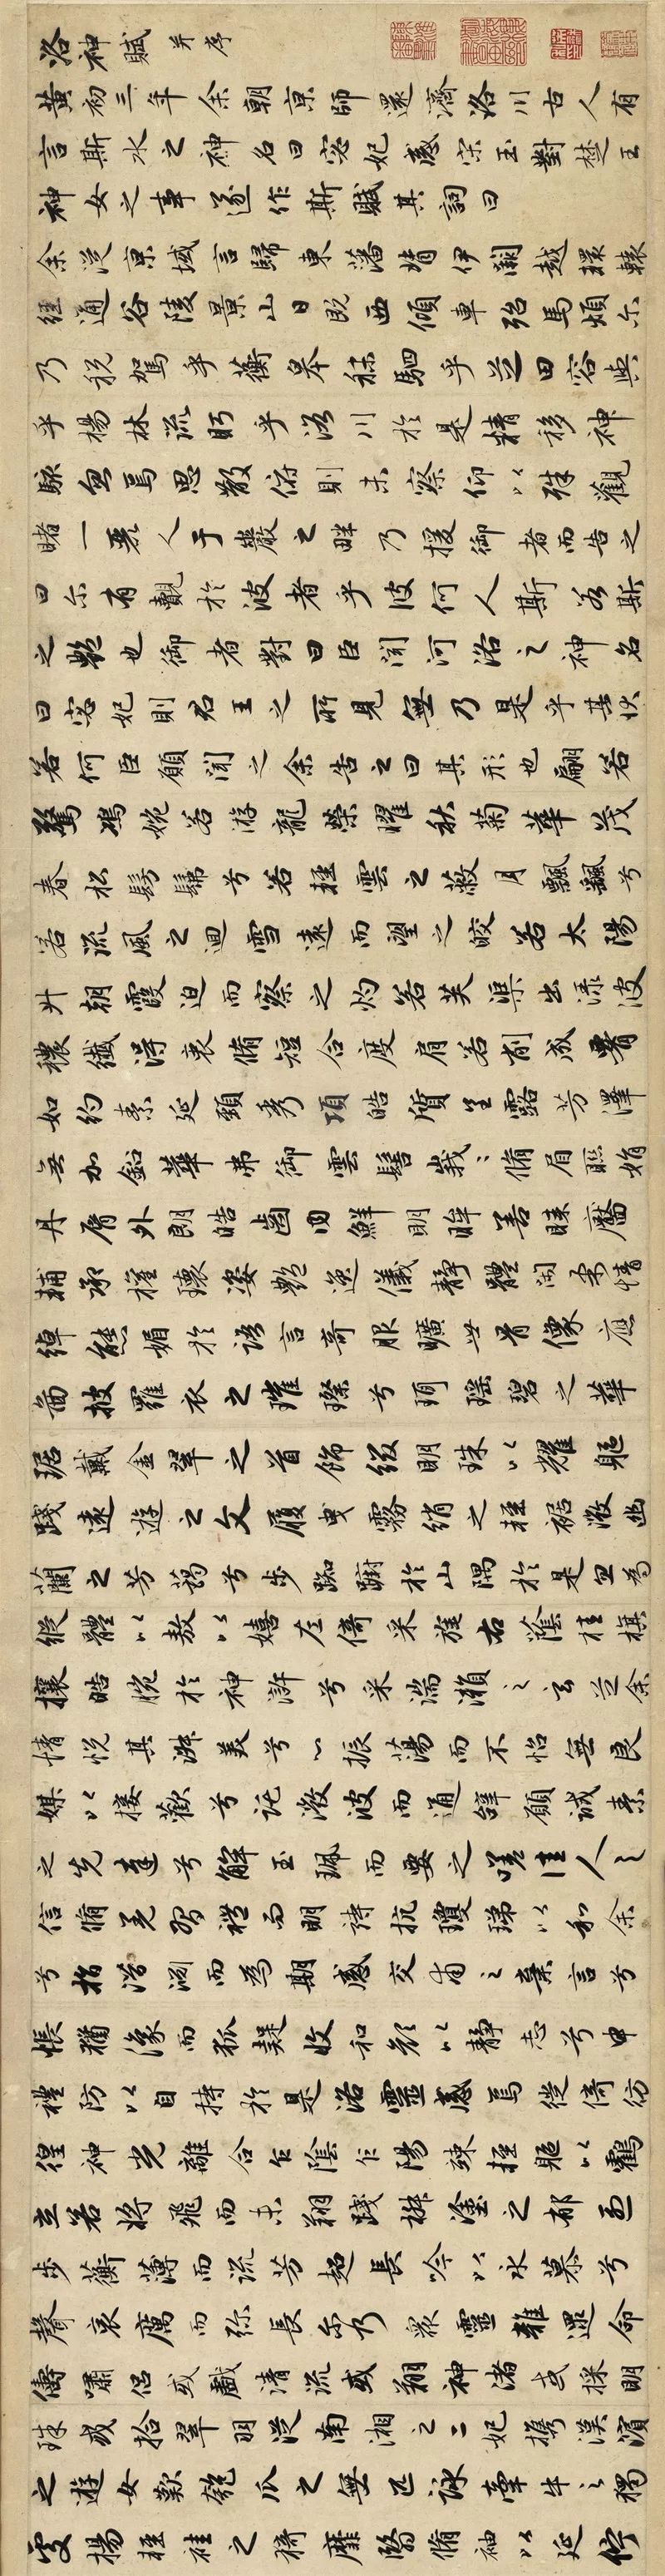 洛神賦并序
黃初三年余朝京師還濟洛川古人有
言斯水之神名曰宓妃感宋玉對楚王
神女之事遂作斯賦其詞曰
余從京域言歸東藩背伊闕越轘轅
經通谷陵景山日既西傾車殆馬煩尔
乃稅駕乎蘅皋秣駟乎芝田容與
乎楊林流眄乎洛川於是精移神
駭忽焉思散俯則未察仰以殊觀
睹一麗人于巖之畔乃援御者而告之
曰尔有覿於彼者乎彼何人斯若斯
之艷也御者對曰臣聞河洛之神名
曰宓妃則君王之所見無乃是乎其狀
若何臣願聞之余告之曰其形也翩若
驚鴻婉若游龍榮曜秋菊華茂
春松髣髴兮若輕雲之蔽月飄颻兮
若流風之迴雪遠而望之皎若太陽
升朝霞迫而察之灼若芙渠出淥波
穠纖得衷脩短合度肩若削成署
如約素延頸秀項皓質呈露芳澤
無加鉛華弗御雲髻峩〻脩眉聯娟
丹脣外朗皓齒內鮮明眸善睞靨
輔承權瓌姿艷逸儀靜體閑柔情
綽態媚於語言奇服曠世骨像應
啚披羅衣之璀璨兮珥瑤碧之華
琚戴金翠之首飾綴明珠以耀軀
踐遠遊之文履曳霧綃之輕裾微幽
蘭之芳藹兮步踟躕於山隅於是忽焉
縱體以敖以嬉左倚采旄右蔭桂旗
攘皓腕於神滸兮采湍瀨之玄芝余
情悅其淑美兮心振蕩而不怡無良
媒以接歡兮託微波而通辭願誠素
之先達兮解玉珮而要之嗟佳人之
信脩羌習禮而明詩抗瓊珶以和余
兮指潛淵而為期感交甫之棄言兮
悵猶豫而狐疑收和顏以靜志兮申
禮防以自持於是洛靈感焉徙倚彷
徨神光離合乍陰乍陽竦輕軀以鶴
立若將飛而未翔踐椒塗之郁烈
步蘅薄而流芳超長吟以永慕兮
聲哀厲而弥長尔乃衆靈雜遝命
儔嘯侶或戲清流或翔神渚或採明
珠或拾翠羽從南湘之二妃攜漢濱
之遊女歎匏瓜之無匹詠牽牛之獨
處揚輕袿之猗靡翳脩袖以延佇